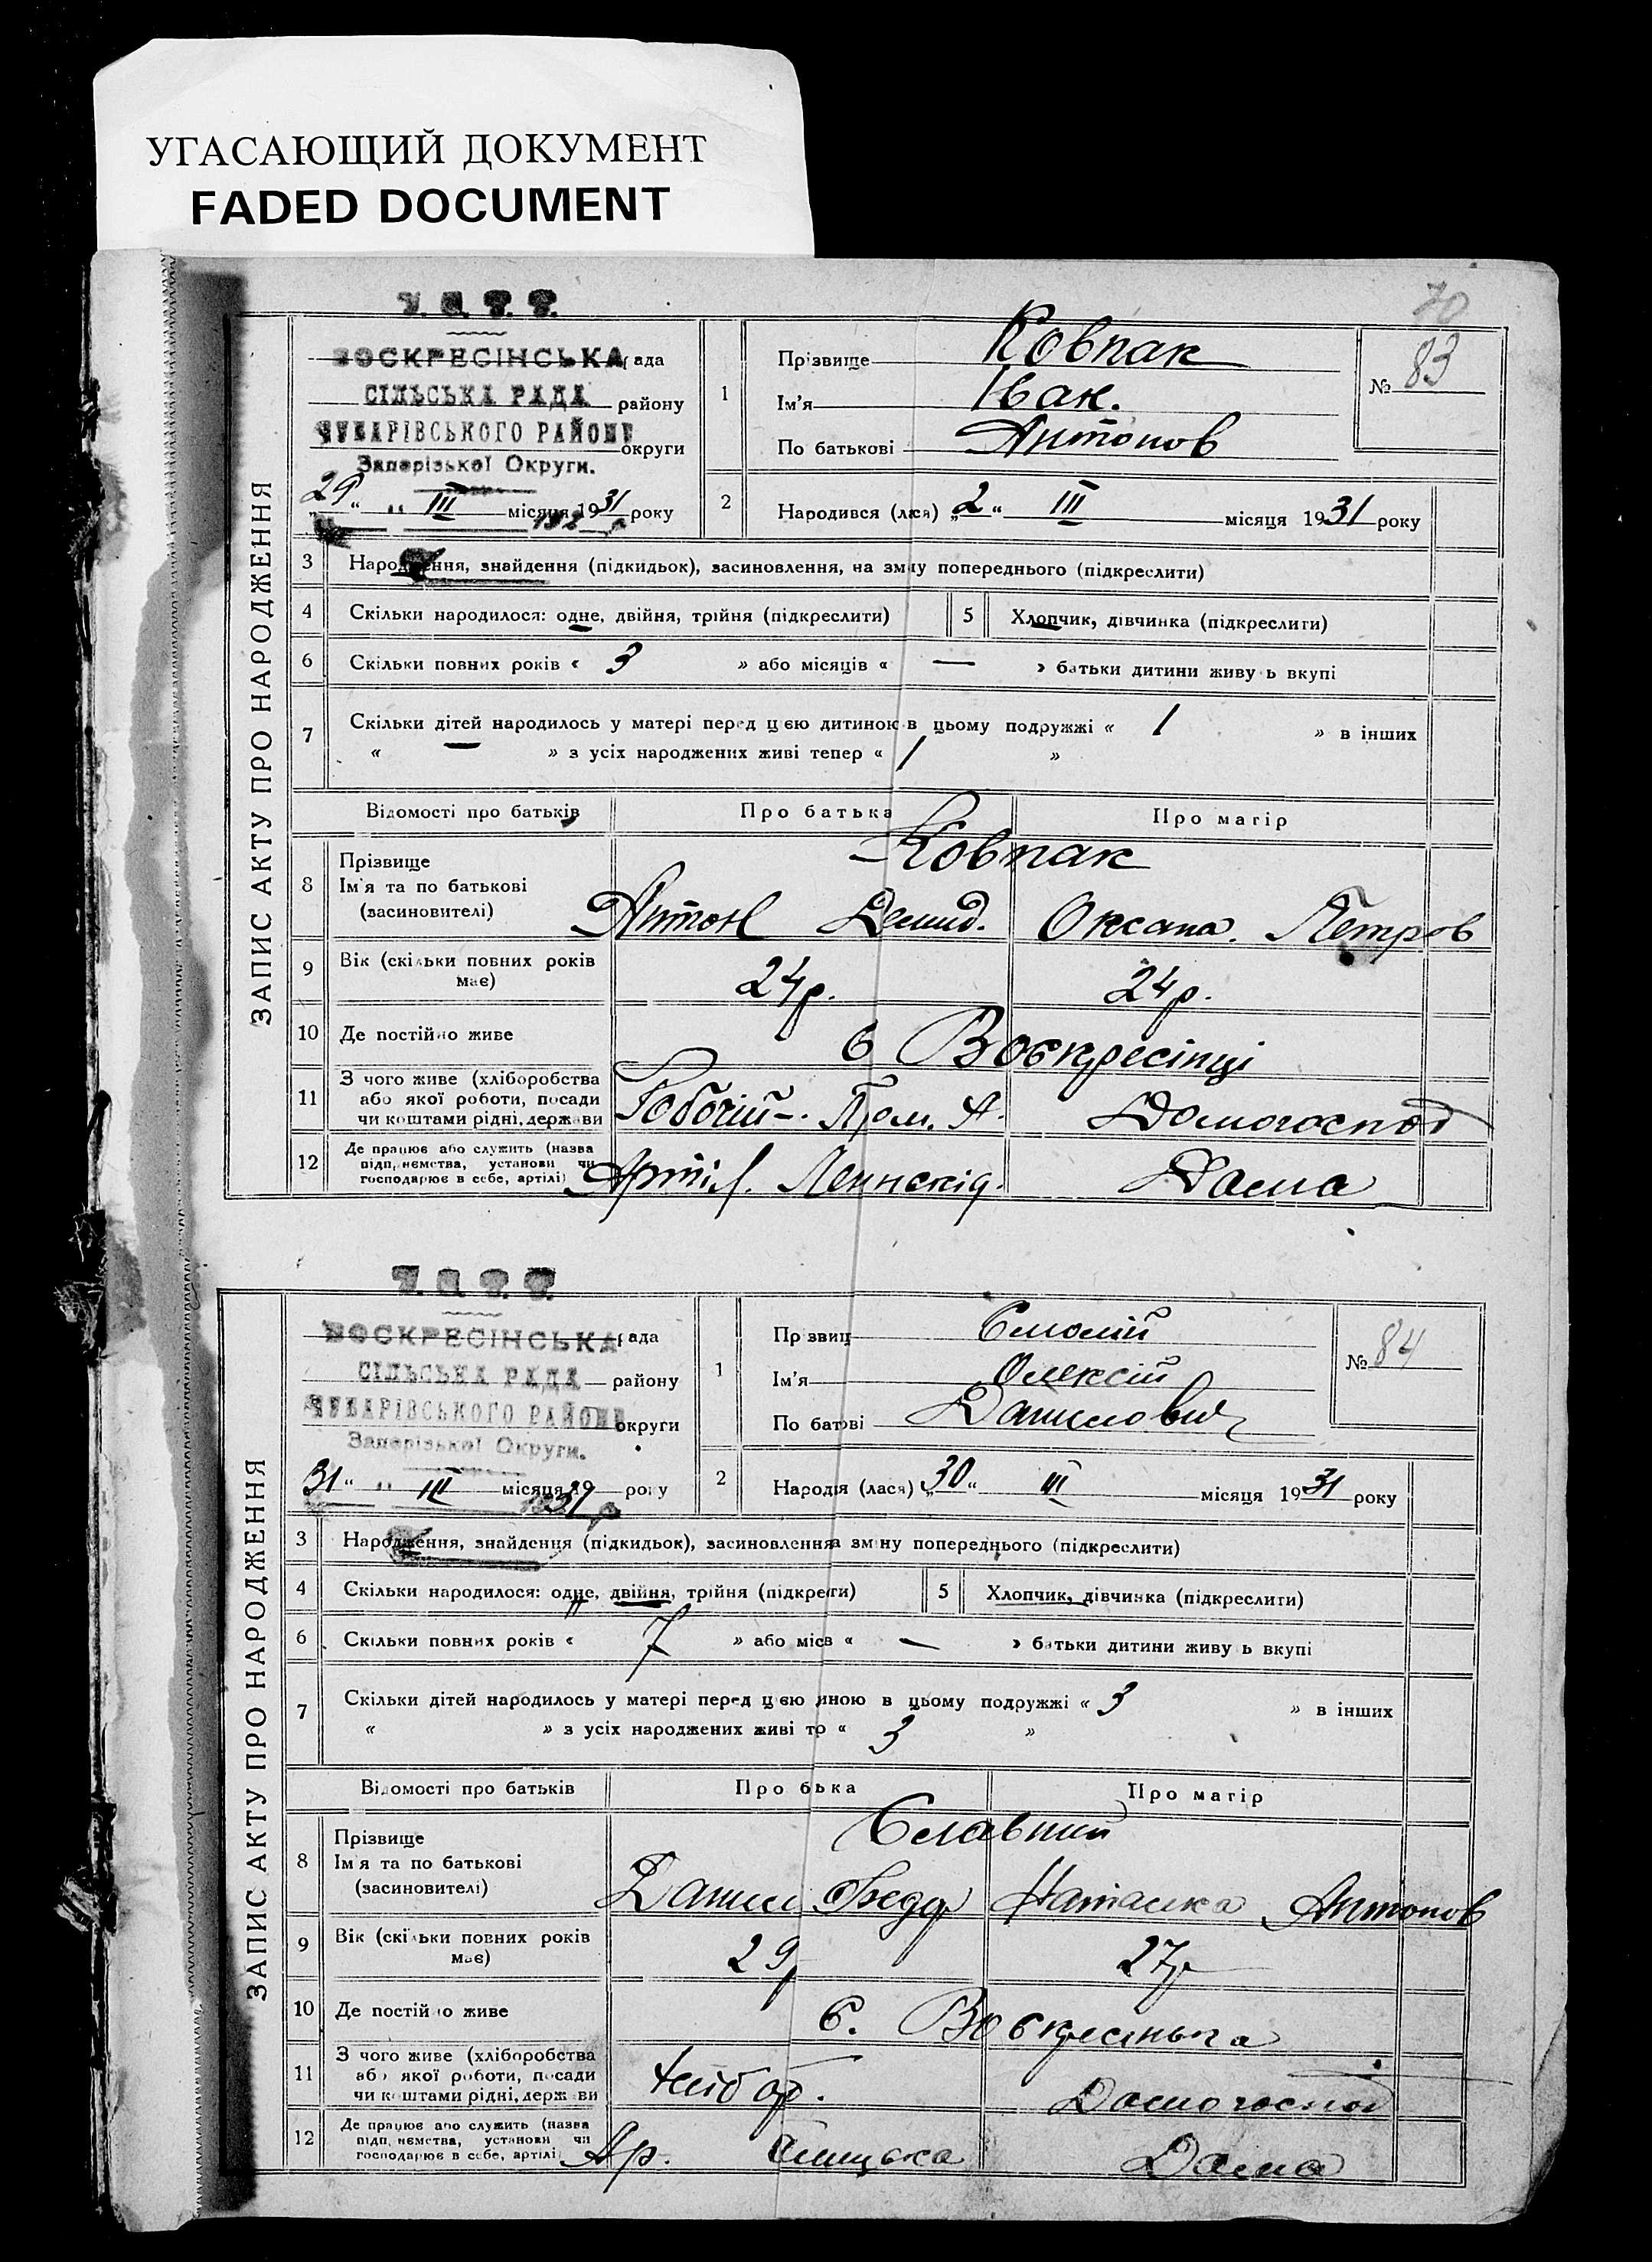 УГАСАЮЩИЙ ДОКУМЕНТ
FADED DOCUMENT
70
ЗАПИС АКТУ ПРО НАРОДЖЕННЯ
У. С. Р. Р.
ВОСКРЕСІНСЬКА рада
СІЛЬСЬКА РАДА району
ЧУБАРІВСЬКОГО РАЙОНУ округи
Запорізької Округи.
„29“ III місяця 1931 року
1 Прізвище Ковпак
Ім'я Іван.
По батькові Антонов
№ 83
2 Народився (лася) „2“ III місяця 1931 року
3 Народження, знайдення (підкидьок), засиновлення, на зміну попереднього (підкреслити)
4 Скільки народилося: одне, двійня, трійня (підкреслити) 5 Хлопчик, дівчинка (підкреслити)
6 Скільки повних років « 3 » або місяців « — » батьки дитини живуть вкупі
7 Скільки дітей народилось у матері перед цією дитиною в цьому подружжі « 1 » в інших
« — » з усіх народжених живі тепер « 1 »
Відомості про батьків Про батька Про матір
8 Прізвище Ковпак
Ім'я та по батькові
(засиновителі) Антон Демид. Оксана. Петров
9 Вік (скільки повних років має) 24р. 24р.
10 Де постійно живе с Воскресінці
11 З чого живе (хліборобства
або якої роботи, посади
чи коштами рідні, держави Робочій-. Пром. А. Домогоспод
12 Де працює або служить (назва
підприємства, установи чи
господарює в себе, артілі) Артіл. Дома
ЗАПИС АКТУ ПРО НАРОДЖЕННЯ
У. С. Р. Р.
ВОСКРЕСІНСЬКА рада
СІЛЬСЬКА РАДА району
ЧУБАРІВСЬКОГО РАЙОНУ округи
Запорізької Округи.
31“ III місяця 1931 року
1 Прізвищ
Ім'я Олексій
По батові Данилович
№ 84
2 Народія (лася) „30“ III місяця 1931 року
3 Народження, знайдення (підкидьок), засиновлення зміну попереднього (підкреслити)
4 Скільки народилося: одне, двійня, трійня (підкреити) 5 Хлопчик, дівчинка (підкреслити)
6 Скільки повних років « 7 » або місв « — » батьки дитини живуть вкупі
7 Скільки дітей народилось у матері перед цією иною в цьому подружжі « 3 » в інших
« » з усіх народжених живі то « 3 »
Відомості про батьків Про бька Про матір
8 Прізвище Славний
Ім'я та по батькові
(засиновителі) Данил Федор Наталка Антонов
9 Вік (скільки повних років має) 29р 27р
10 Де постійно живе с. Воскресінька
11 З чого живе (хліборобства
або якої роботи, посади
чи коштами рідні, держави Хлібор. Домогоспод
12 Де працює або служить (назва
підприємства, установи чи
господарює в себе, артілі Ар. Дома